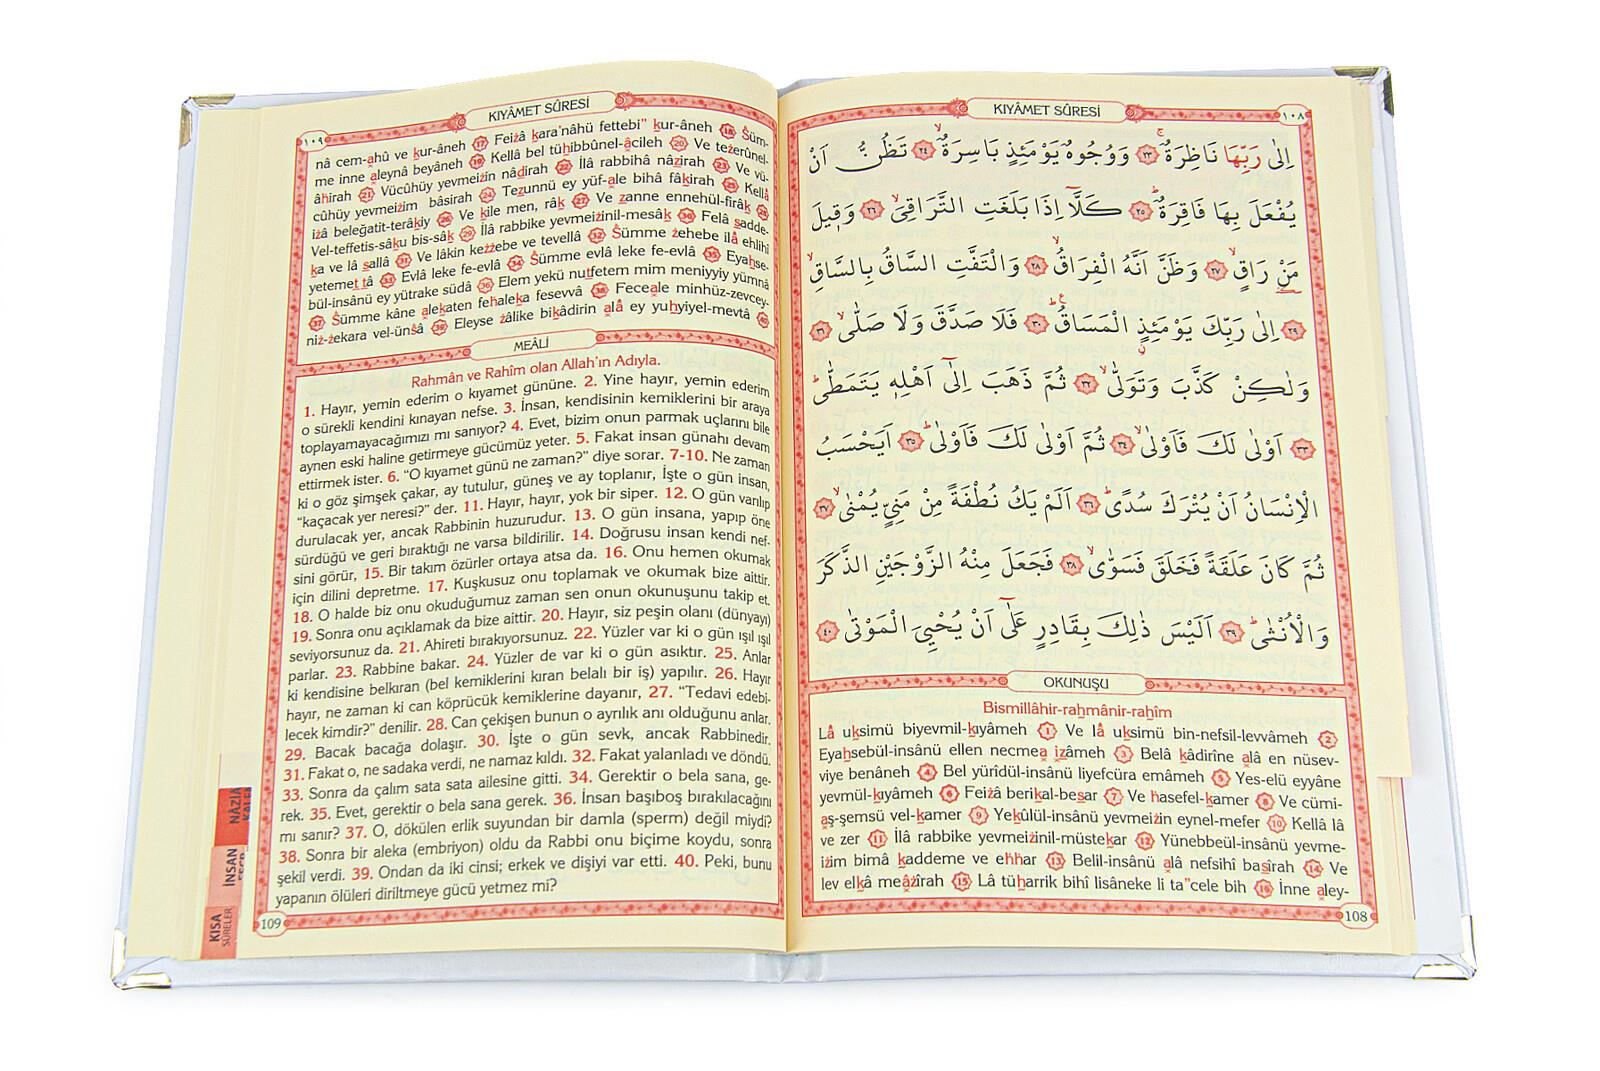 KIYÂMET SÛRESİ
١٠٨
اِلٰى رَبِّهَا نَاظِرَةٌۚ ﴿٢٣﴾ وَوُجُوهٌ يَوْمَئِذٍ بَاسِرَةٌۙ ﴿٢٤﴾ تَظُنُّ اَنْ
يُفْعَلَ بِهَا فَاقِرَةٌۜ ﴿٢٥﴾ كَلَّٓا اِذَا بَلَغَتِ التَّرَاقِيَۙ ﴿٢٦﴾ وَقٖيلَ
مَنْ رَاقٍۙ ﴿٢٧﴾ وَظَنَّ اَنَّهُ الْفِرَاقُۙ ﴿٢٨﴾ وَالْتَفَّتِ السَّاقُ بِالسَّاقِۙ
﴿٢٩﴾ اِلٰى رَبِّكَ يَوْمَئِذٍ الْمَسَاقُۜ ﴿٣٠﴾ فَلَا صَدَّقَ وَلَا صَلّٰىۙ ﴿٣١﴾
وَلٰكِنْ كَذَّبَ وَتَوَلّٰىۙ ﴿٣٢﴾ ثُمَّ ذَهَبَ اِلٰٓى اَهْلِهٖ يَتَمَطّٰىۜ
﴿٣٣﴾ اَوْلٰى لَكَ فَاَوْلٰىۙ ﴿٣٤﴾ ثُمَّ اَوْلٰى لَكَ فَاَوْلٰىۜ ﴿٣٥﴾ اَيَحْسَبُ
الْاِنْسَانُ اَنْ يُتْرَكَ سُدًىۜ ﴿٣٦﴾ اَلَمْ يَكُ نُطْفَةً مِنْ مَنِيٍّ يُمْنٰىۙ ﴿٣٧﴾
ثُمَّ كَانَ عَلَقَةً فَخَلَقَ فَسَوّٰىۙ ﴿٣٨﴾ فَجَعَلَ مِنْهُ الزَّوْجَيْنِ الذَّكَرَ
وَالْاُنْثٰىۜ ﴿٣٩﴾ اَلَيْسَ ذٰلِكَ بِقَادِرٍ عَلٰٓى اَنْ يُحْيِيَ الْمَوْتٰى ﴿٤٠﴾
OKUNUŞU
Bismillâhir-rahmânir-rahîm
Lâ uksimü biyevmil-kıyâmeh 1 Ve lâ uksimü bin-nefsil-levvâmeh 2
Eyahsebül-insânü ellen necmea izâmeh 3 Belâ kâdirîne alâ en nüsev-
viye benâneh 4 Bel yürîdül-insânü liyefcüra emâmeh 5 Yes-elü eyyâne
yevmül-kıyâmeh 6 Feizâ berikal-besar 7 Ve hasefel-kamer 8 Ve cümi-
aş-şemsü vel-kamer 9 Yekûlül-insânü yevmeizin eynel-mefer 10 Kellâ lâ
ve zer 11 İlâ rabbike yevmeizinil-müstekar 12 Yünebbeül-insânü yevme-
izim bimâ kaddeme ve ehhar 13 Belil-insânü alâ nefsihî basîrah 14 Ve
lev elkâ meâzîrah 15 Lâ tüharrik bihî lisâneke li ta"cele bih 16 İnne aley-
108
KIYÂMET SÛRESİ
١٠٩
nâ cem-ahû ve kur-âneh 17 Feizâ kara'nâhü fettebi" kur-âneh 18 Süm-
me inne aleynâ beyâneh 19 Kellâ bel tühibbûnel-âcileh 20 Ve tezerûnel-
âhirah 21 Vücûhüy yevmeizin nâdirah 22 İlâ rabbihâ nâzirah 23 Ve vü-
cûhüy yevmeizim bâsirah 24 Tezunnü ey yüf-ale bihâ fâkirah 25 Kellâ
izâ beleğatit-terâkiy 26 Ve kîle men, râk 27 Ve zanne ennehül-firâk 28
Vel-teffetis-sâku bis-sâk 29 İlâ rabbike yevmeizinil-mesâk 30 Felâ sadde-
ka ve lâ sallâ 31 Ve lâkin kezzebe ve tevellâ 32 Sümme zehebe ilâ ehlihî
yetemettâ 33 Evlâ leke fe-evlâ 34 Sümme evlâ leke fe-evlâ 35 Eyahse-
bül-insânü ey yütrake südâ 36 Elem yekü nutfetem mim meniyyiy yümnâ
37 Sümme kâne alekaten fehaleka fesevvâ 38 Feceale minhüz-zevcey-
niz-zekara vel-ünsâ 39 Eleyse zâlike bikâdirin alâ ey yuhyiyel-mevtâ 40
MEÂLİ
Rahmân ve Rahîm olan Allah'ın Adıyla.
1. Hayır, yemin ederim o kıyamet gününe. 2. Yine hayır, yemin ederim
o sürekli kendini kınayan nefse. 3. İnsan, kendisinin kemiklerini bir araya
toplayamayacağımızı mı sanıyor? 4. Evet, bizim onun parmak uçlarını bile
aynen eski haline getirmeye gücümüz yeter. 5. Fakat insan günahı devam
ettirmek ister. 6. "O kıyamet günü ne zaman?" diye sorar. 7-10. Ne zaman
ki o göz şimşek çakar, ay tutulur, güneş ve ay toplanır, İşte o gün insan,
"kaçacak yer neresi?" der. 11. Hayır, hayır, yok bir siper. 12. O gün varılıp
durulacak yer, ancak Rabbinin huzurudur. 13. O gün insana, yapıp öne
sürdüğü ve geri bıraktığı ne varsa bildirilir. 14. Doğrusu insan kendi nef-
sini görür, 15. Bir takım özürler ortaya atsa da. 16. Onu hemen okumak
için dilini depretme. 17. Kuşkusuz onu toplamak ve okumak bize aittir.
18. O halde biz onu okuduğumuz zaman sen onun okunuşunu takip et.
19. Sonra onu açıklamak da bize aittir. 20. Hayır, siz peşin olanı (dünyayı)
seviyorsunuz da. 21. Ahireti bırakıyorsunuz. 22. Yüzler var ki o gün ışıl ışıl
parlar. 23. Rabbine bakar. 24. Yüzler de var ki o gün asıktır. 25. Anlar
ki kendisine belkıran (bel kemiklerini kıran belalı bir iş) yapılır. 26. Hayır
hayır, ne zaman ki can köprücük kemiklerine dayanır, 27. "Tedavi edebi-
lecek kimdir?" denilir. 28. Can çekişen bunun o ayrılık anı olduğunu anlar.
29. Bacak bacağa dolaşır. 30. İşte o gün sevk, ancak Rabbinedir.
31. Fakat o, ne sadaka verdi, ne namaz kıldı. 32. Fakat yalanladı ve döndü.
33. Sonra da çalım sata sata ailesine gitti. 34. Gerektir o bela sana, ge-
rek. 35. Evet, gerektir o bela sana gerek. 36. İnsan başıboş bırakılacağını
mı sanır? 37. O, dökülen erlik suyundan bir damla (sperm) değil miydi?
38. Sonra bir aleka (embriyon) oldu da Rabbi onu biçime koydu, sonra
şekil verdi. 39. Ondan da iki cinsi; erkek ve dişiyi var etti. 40. Peki, bunu
yapanın ölüleri diriltmeye gücü yetmez mi?
109
İNSAN
KISA
SÛRELER